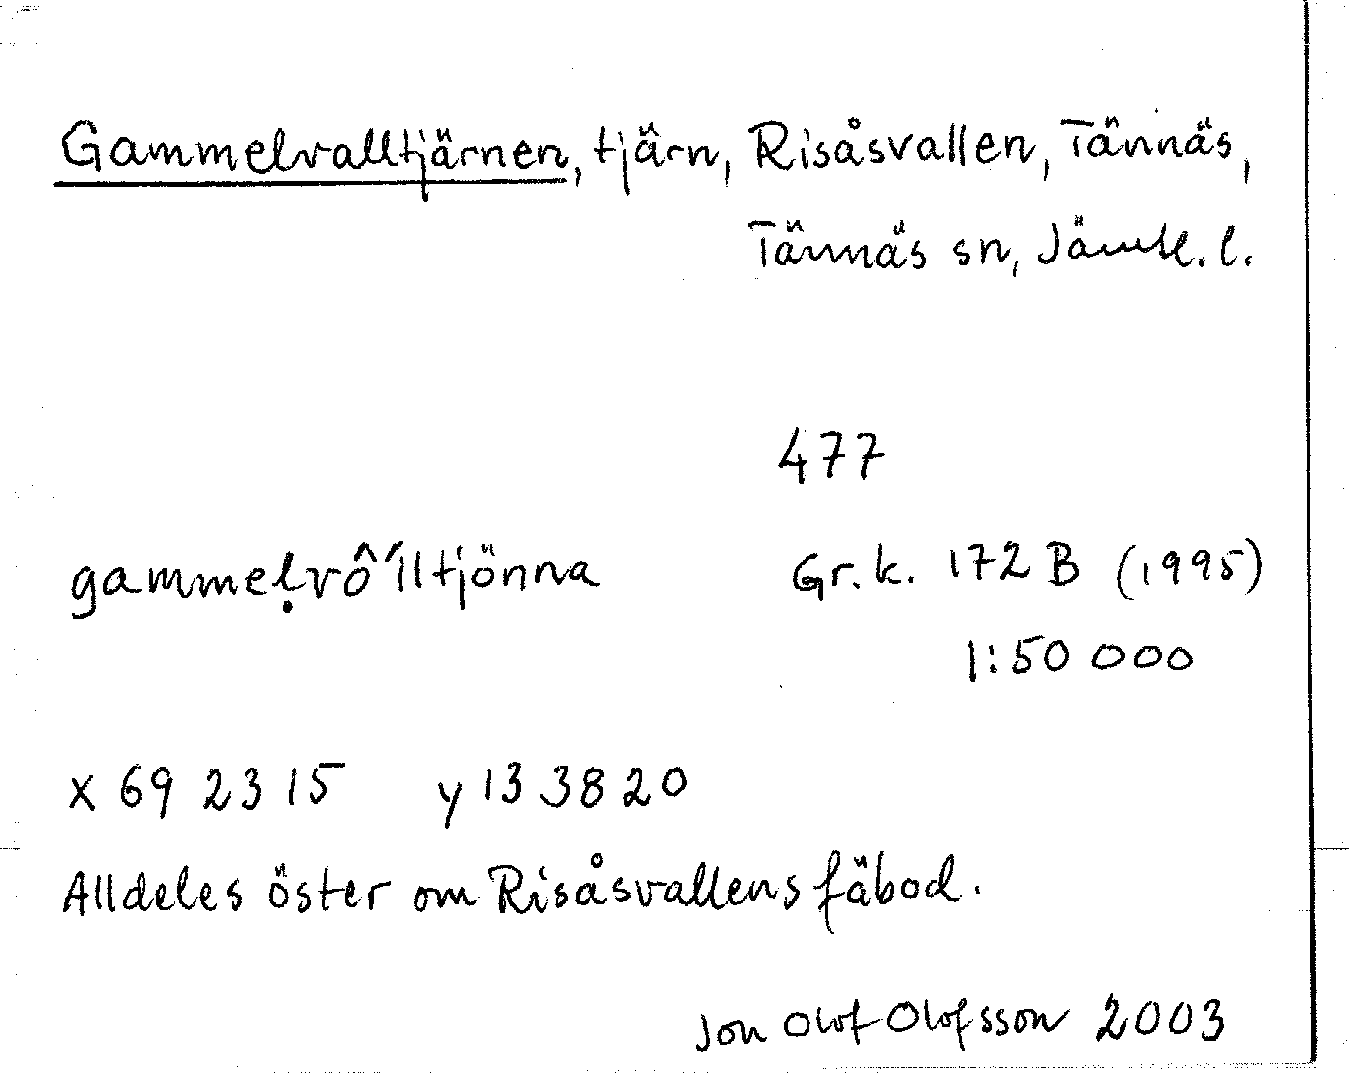 Gammelvalltjärnen, tjärn, Risåsvallen, Tännäs,
Tännäs sn, Jämtl. l.
477
gammeḷvô´lltjönna Gr.k. 172 B (1995)
1:50 000
x 69 23 15 y 13 38 20
Alldeles öster om Risåsvallens fäbod.
Jon Olof Olofsson 2003